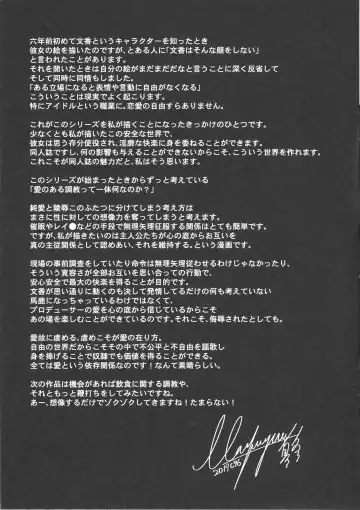 六年前初めて文香というキャラクターを知ったとき
彼女の絵を描いたのですが、とある人に「文香はそんな顔をしない」
と言われたことがあります。
それを聞いたときは自分の絵がまだまだだなと言うことに深く反省して
そして同時に同情もしました。
「ある立場になると表情や言動に自由がなくなる」
こういうことは現実でよく起こります。
特にアイドルという職業に。恋愛の自由すらありません。
これがこのシリーズを私が描くことになったきっかけのひとつです。
少なくとも私が描いたこの安全な世界で、
彼女は思う存分役されど、淫靡な快楽に身を委ねることができます。
同人誌ですし、何の影響も与えることができないからこそ、こういう世界を作れます。
これこそが同人誌の魅力だと、私はそう思います。
このシリーズが始まったときからずっと考えている
「愛のある調教って一体何なのか？」
純愛と陵辱このふたつに分けてしまう考え方は
まさに性に対しての想像力を奪ってしまうと考えます。
催眠やレイ●などの手段で無理矢理征服する関係はとても簡単です。
ですが、私が描きたいのは主人公たちが心の底からお互いを
真の主従関係として認めあい、それを維持する。という漫画です。
現場の事前調査をしていたりか命令は無理矢理従わせるわけじゃなかったり、
そういう寛容さが全部お互いを思い合っての行動で、
安心安全で最大の快楽を得ることが目的です。
文香が思い通りに動くのも決して発情してるだけの何も考えていない
馬鹿になっちゃっているわけではなくて、
プロデューサーの愛を心の底から信じているからこそ
あの場を楽しむことができているのです。それこそ、侮辱されたとしても。
愛故に虐める、虐めこそが愛の在り方。
自由の世界だからこそその中で不公平と不自由を謳歌し
身を捧げることで奴隷でも価値を得ることができる。
全ては愛という依存関係なのです！なんて素晴らしい。
次の作品は機会があれば飲食に関する調教や、
それともっと鞭打ちをしてみたいですね。
あー、想像するだけでゾクゾクしてきますね！たまらない！